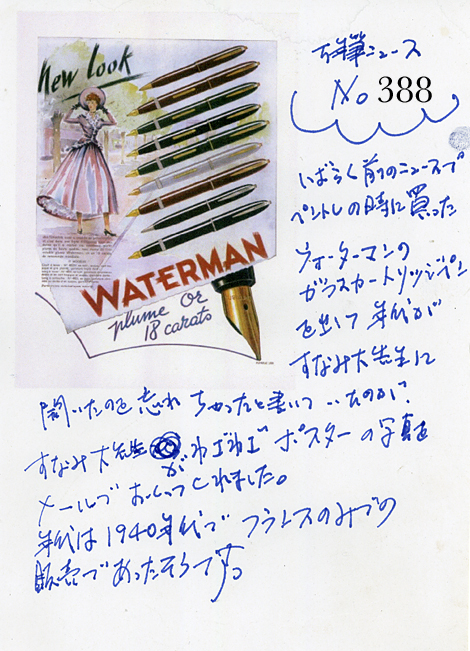 New Look
WATERMAN
plume or
18 carats
万年筆ニュース
No 388
しばらく前のニュースで
ペントレの時に買った
ウォーターマンの
ガラスカートリッジペン
を出して年代が
すなみ大先生に
聞いたのを忘れちゃったと書いていたのが?
すなみ大先生がわざわざポスターの写真を
メールでおくってくれました。
年代は1940年代でフランスのみでの
販売であったそうです。